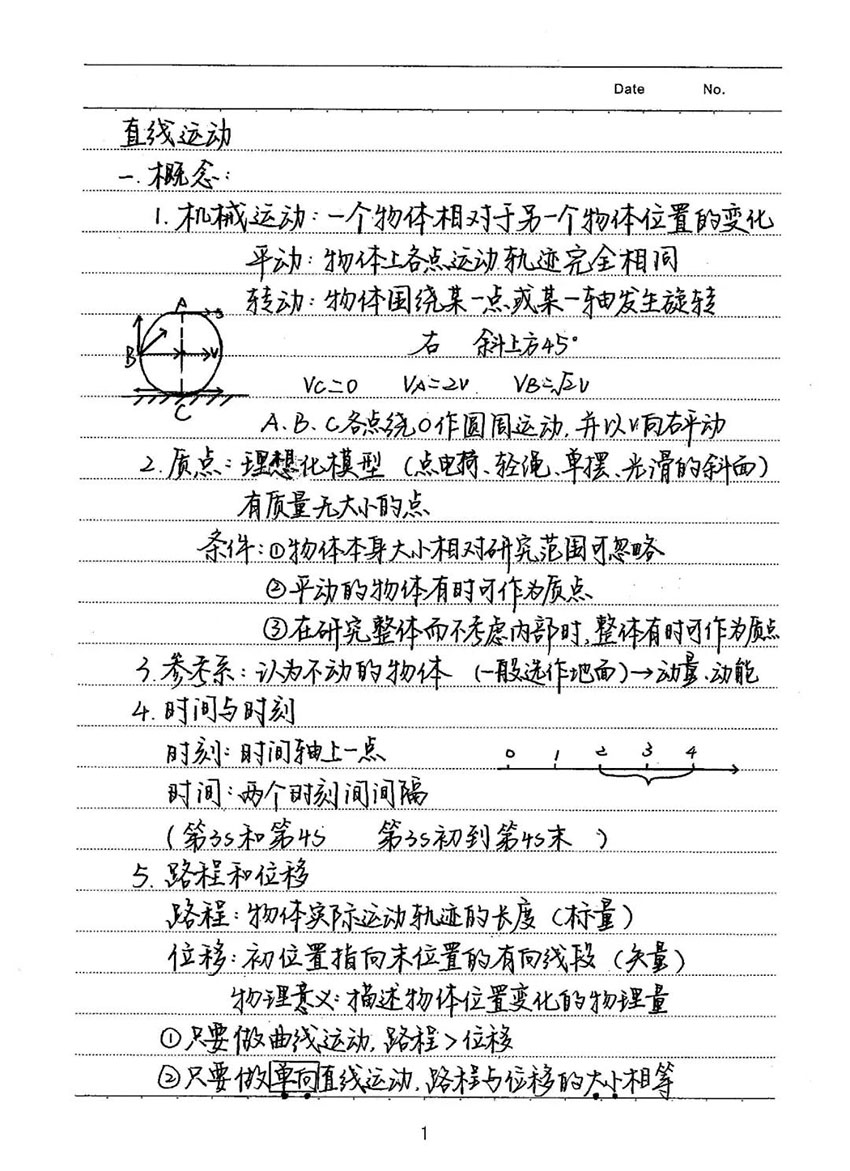 Date No.
直线运动
一.概念:
1. 机械运动:一个物体相对于另一个物体位置的变化
平动:物体上各点运动轨迹完全相同
转动:物体围绕某一点或某一轴发生旋转
A
B
V
C
右 斜上方45°
Vc=0 VA=2V VB=√2V
A.B.C各点绕O作圆周运动,并以V向右平动
2. 质点:理想化模型(点电荷、轻绳、单摆、光滑的斜面)
有质量无大小的点
条件:①物体本身大小相对研究范围可忽略
②平动的物体有时可作为质点
③在研究整体而不考虑内部时,整体有时可作为质点
3. 参考系:认为不动的物体 (一般选作地面)→动量、动能
4. 时间与时刻
时刻:时间轴上一点
0 1 2 3 4
时间:两个时刻间间隔
(第3s和第4s 第3s初到第4s末 )
5. 路程和位移
路程:物体实际运动轨迹的长度(标量)
位移:初位置指向末位置的有向线段(矢量)
物理意义:描述物体位置变化的物理量
①只要做曲线运动,路程>位移
②只要做单向直线运动,路程与位移的大小相等
1